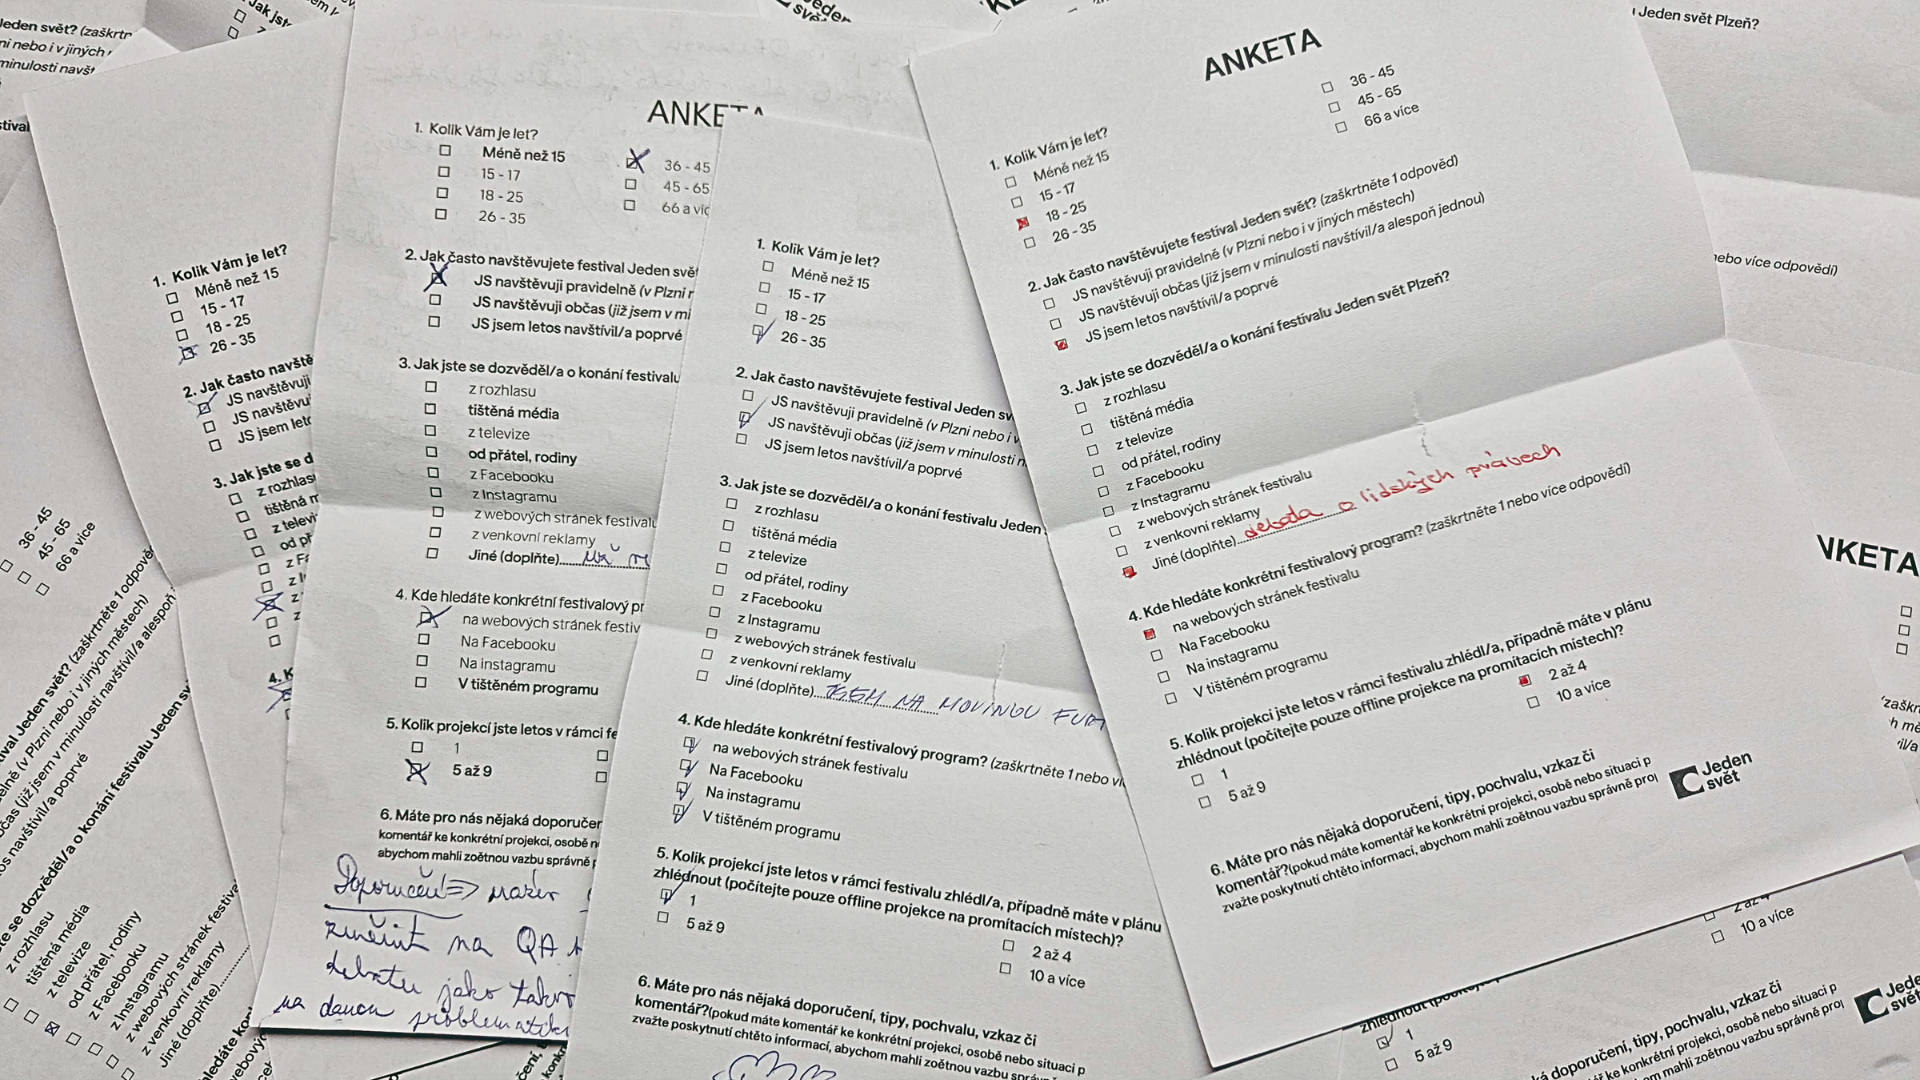 Jeden svět? (zaškrtn
ni nebo i v jiných
minulosti navšt
Jak jst
Jeden
svě
Jeden svět Plzeň?
nebo více odpovědí)
1. Kolik Vám je let?
Méně než 15
15 - 17
18 - 25
26 - 35
2. Jak často navště
JS navštěvuji
JS navštěvu
JS jsem letr
3. Jak jste se d
z rozhlas
tištěná m
z televi
od př
z F
z I
z
z
4. K
36 - 45
45 - 65
66 a více
val Jeden svět? (zaškrtněte 1 odpově
elně (v Plzni nebo i v jiných městech)
bčas (již jsem v minulosti navštívil/a alespoň
os navštívil/a poprvé
te se dozvěděl/a o konání festivalu Jeden sv
z rozhlasu
tištěná média
z televize
od přátel, rodiny
z Facebooku
z Instagramu
z webových stránek festival
z venkovní reklamy
Jiné (doplňte)
hledáte kon
ANKETA
1. Kolik Vám je let?
Méně než 15
15 - 17
18 - 25
26 - 35
36 - 45
45 - 65
66 a víc
2. Jak často navštěvujete festival Jeden svě
JS navštěvuji pravidelně (v Plzni r
JS navštěvuji občas (již jsem v mi
JS jsem letos navštívil/a poprvé
3. Jak jste se dozvěděl/a o konání festivalu
z rozhlasu
tištěná média
z televize
od přátel, rodiny
z Facebooku
z Instagramu
z webových stránek festival
z venkovní reklamy
Jiné (doplňte)
4. Kde hledáte konkrétní festivalový pr
na webových stránek festiv
Na Facebooku
Na instagramu
V tištěném programu
5. Kolik projekcí jste letos v rámci fe
1
5 až 9
6. Máte pro nás nějaká doporučer
komentář ke konkrétní projekci, osobě n
abychom mahli zoětnou vazbu správně p
Doporučení => název
změnit na QA
debatu jako takvo
na danou problematiku
1. Kolik Vám je let?
Méně než 15
15 - 17
18 - 25
26 - 35
2. Jak často navštěvujete festival Jeden sv
JS navštěvuji pravidelně (v Plzni nebo i v
JS navštěvuji občas (již jsem v minulosti n
JS jsem letos navštívil/a poprvé
3. Jak jste se dozvěděl/a o konání festivalu Jeden
z rozhlasu
tištěná média
z televize
od přátel, rodiny
z Facebooku
z Instagramu
z webových stránek festivalu
z venkovní reklamy
Jiné (doplňte) JSEM NA MOVINGU FURT
4. Kde hledáte konkrétní festivalový program? (zaškrtněte 1 nebo ví
na webových stránek festivalu
Na Facebooku
Na instagramu
V tištěném programu
5. Kolik projekcí jste letos v rámci festivalu zhlédl/a, případně máte v plánu
zhlédnout (počítejte pouze offline projekce na promítacích místech)?
1
5 až 9
2 až 4
10 a více
6. Máte pro nás nějaká doporučení, tipy, pochvalu, vzkaz či
komentář?(pokud máte komentář ke konkrétní projekci, osobě nebo situaci p
zvažte poskytnutí chtěto informací, abychom mahli zoětnou vazbu správ
ANKETA
1. Kolik Vám je let?
Méně než 15
15 - 17
18 - 25
26 - 35
36 - 45
45 - 65
66 a více
2. Jak často navštěvujete festival Jeden svět? (zaškrtněte 1 odpověd)
JS navštěvuji pravidelně (v Plzni nebo i v jiných městech)
JS navštěvuji občas (již jsem v minulosti navštívil/a alespoň jednou)
JS jsem letos navštívil/a poprvé
3. Jak jste se dozvěděl/a o konání festivalu Jeden svět Plzeň?
z rozhlasu
tištěná média
z televize
od přátel, rodiny
z Facebooku
z Instagramu
z webových stránek festivalu
z venkovní reklamy
Jiné (doplňte) debata o lidských právech
4. Kde hledáte konkrétní festivalový program? (zaškrtněte 1 nebo více odpovědí)
na webových stránek festivalu
Na Facebooku
Na instagramu
V tištěném programu
5. Kolik projekcí jste letos v rámci festivalu zhlédl/a, případně máte v plánu
zhlédnout (počítejte pouze offline projekce na promítacích místech)?
1
5 až 9
2 až 4
10 a více
6. Máte pro nás nějaká doporučení, tipy, pochvalu, vzkaz či
komentář?(pokud máte komentář ke konkrétní projekci, osobě nebo situaci p
zvažte poskytnutí chtěto informací, abychom mahli zoětnou vazbu správně proj
Jeden
svět
NKETA
2 až 4
10 a více
1
5 až 9
doporučení, tipy, pochvalu, vzkaz či
ář ke konkrétní projekci, osobě nebo situaci p
informací, abychom mahli zoětnou vazbu správně proj
Jede
svět